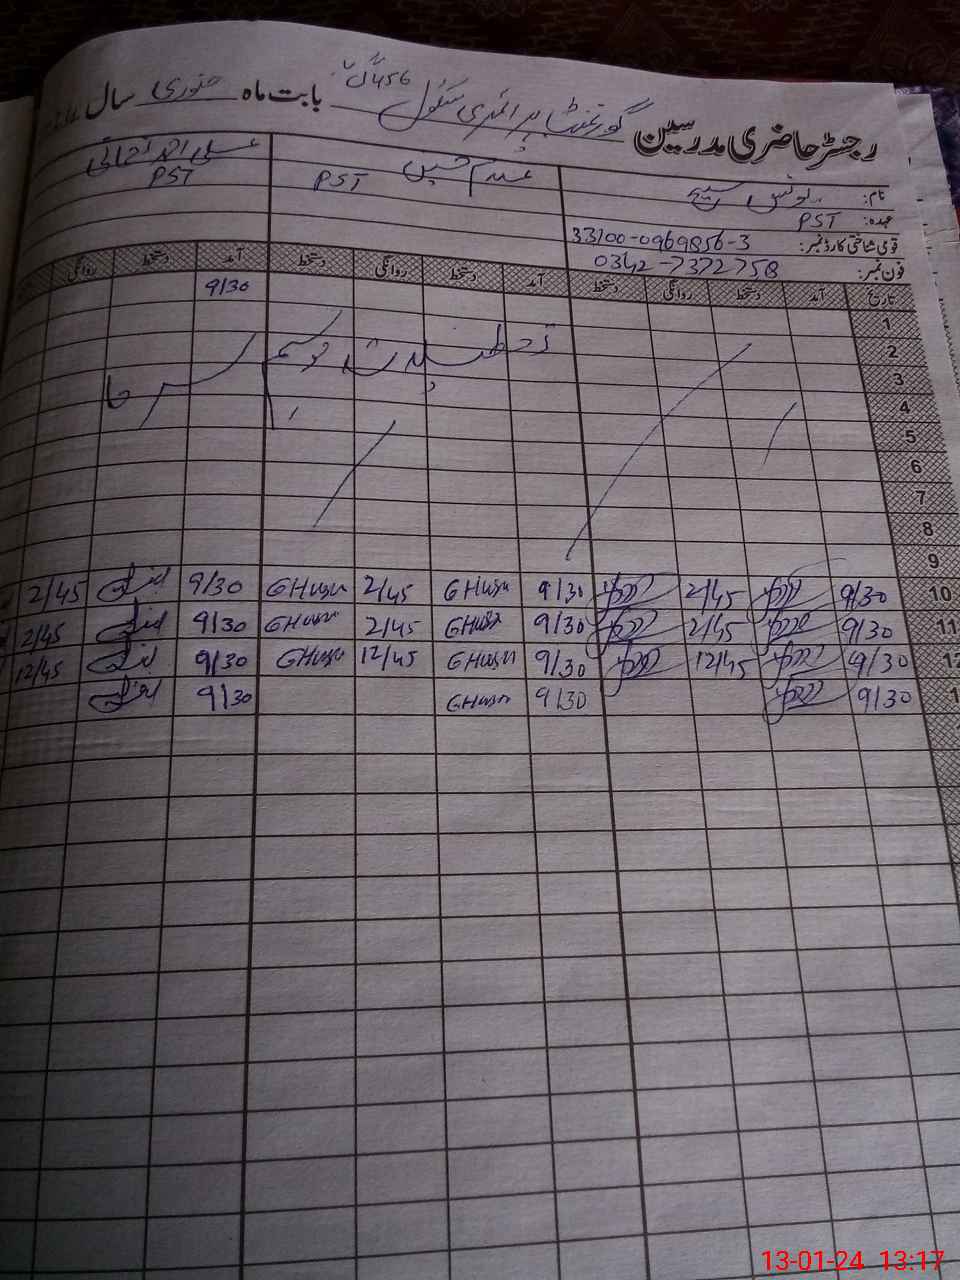 رجسٹر حاضری مدرسین گورنمنٹ پرائمری سکول 456 گ ب بابت ماہ جنوری سال
نام: یونس مسیح غلام حسین علی احمد
عہدہ: PST PST PST
قومی شناختی کارڈ نمبر: 33100-0969856-3
فون نمبر: 0342-7372758
تاریخ آمد دستخط روانگی دستخط آمد دستخط روانگی دستخط آمد دستخط روانگی
1 9/30
2
3 تعطیلات موسم سرما
4
5
6
7
8
9
10 9/30 2/45 9/30 GHusn 2/45 GHusn 9/30 2/45
11 9/30 2/45 9/30 GHusn 2/45 GHusn 9/30 2/45
12 9/30 12/45 9/30 GHusn 12/45 GHusn 9/30 12/45
1 9/30 9/30 GHusn 9/30
13-01-24 13:17